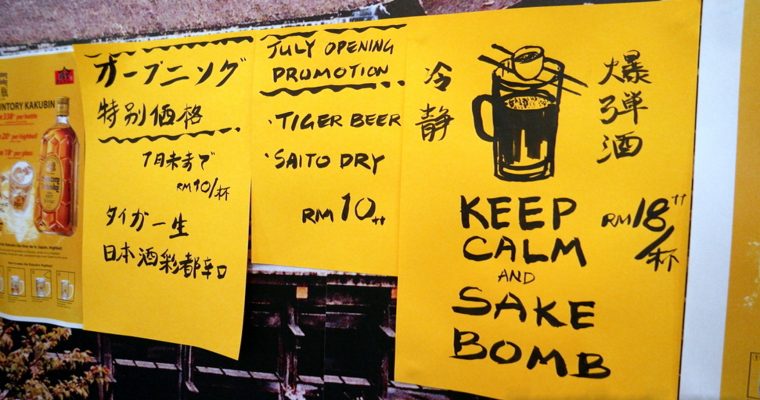 SUNTORY KAKUBIN
オープニング
特別価格
7月末まで
RM10/杯
タイガー生
日本酒彩都辛口
JULY OPENING
PROMOTION
・TIGER BEER
・SAITO DRY
RM10++
冷静
爆弾酒
KEEP
CALM
AND
SAKE
BOMB
RM18++
/杯